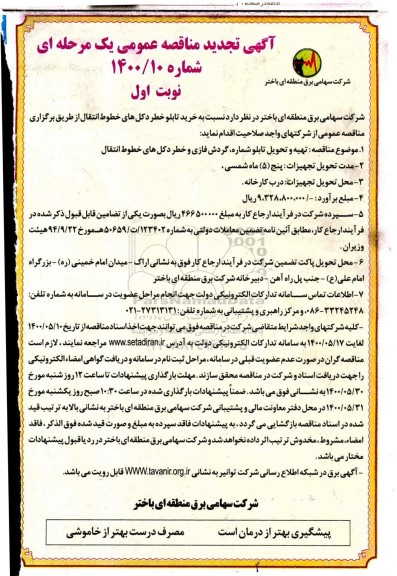 آگهی تجدید مناقصه عمومی یک مرحله ای
شماره ۱۴۰۰/۱۰
نوبت اول
شرکت سهامی برق منطقه ای باختر
شرکت سهامی برق منطقه ای باختر در نظر دارد نسبت به خرید تابلو خطر دکل های خطوط انتقال از طریق برگزاری
مناقصه عمومی از شرکتهای واجد صلاحیت اقدام نماید:
۱.موضوع مناقصه : تهیه و تحویل تابلو شماره، گردش فازی و خطر دکل های خطوط انتقال
۲-مدت تحویل تجهیزات : پنج (۵) ماه شمسی.
۳- محل تحویل تجهیزات: درب کارخانه.
۴- مبلغ برآورد: /۹٬۳۲۸٬۸۰۰٬۰۰۰ ریال
۵- سپرده شرکت در فرآیند ارجاع کار به مبلغ ۴۶۶۵۰۰۰۰۰ ریال بصورت یکی از تضامین قابل قبول ذکر شده در
فرآیند ارجاع کار، مطابق آئین نامه تضمین معاملات دولتی به شماره ۱۲۳۴۰۲/ت/۵۰۶۵۹هـ مورخ ۹۴/۹/۲۲ هیئت
وزیران.
۶- محل تحویل پاکت تضمین شرکت در فرآیند ارجاع کار فوق به نشانی اراک - میدان امام خمینی (ره) - بزرگراه
امام علی(ع) - جنب پل راه آهن - دبیرخانه شرکت برق منطقه ای باختر
۷- اطلاعات تماس سامانه تدارکات الکترونیکی دولت جهت انجام مراحل عضویت در سامانه به شماره تلفن:
۰۸۶-۳۳۲۴۵۲۴۸ و مرکز راهبری و پشتیبانی به شماره تلفن: ۰۲۱-۲۷۳۱۳۱۳۱
-کلیه شرکتهای واجد شرایط متقاضی شرکت در مناقصه فوق می توانند جهت اخذ اسناد مناقصه از تاریخ ۱۴۰۰/۰۵/۱۰
لغایت ۱۴۰۰/۰۵/۱۷ به سامانه تدارکات الکترونیکی دولت به آدرس www.setadiran.ir مراجعه نمایند، لازم است
مناقصه گران در صورت عدم عضویت قبلی در سامانه، مراحل ثبت نام در سامانه و دریافت گواهی امضاء الکترونیکی
را جهت دریافت اسناد و شرکت در مناقصه محقق سازند. مهلت بارگذاری پیشنهادات تا ساعت ۱۲ روز شنبه مورخ
۱۴۰۰/۰۵/۳۰ به نشانی فوق می باشد. ضمناً پیشنهادات بارگذاری شده در ساعت ۱۰:۳۰ صبح روز یکشنبه مورخ
۱۴۰۰/۰۵/۳۱ در محل دفتر معاونت مالی و پشتیبانی شرکت برق منطقه ای باختر به نشانی بالا به ترتیب قید
شده در اسناد مناقصه بازگشایی می گردد، به پیشنهادات فاقد سپرده به مبلغ و صورت قید شده فوق الذکر، فاقد
امضاء، مشروط، مخدوش ترتیب اثر داده نخواهد شد و شرکت سهامی برق منطقه ای باختر در رد یا قبول پیشنهادات
مختار می باشد.
- آگهی برق در شبکه اطلاع رسانی شرکت توانیر به نشانی WWW.tavanir.org.ir قابل رویت می باشد.
شرکت سهامی برق منطقه ای باختر
پیشگیری بهتر از درمان است
مصرف درست بهتر از خاموشی